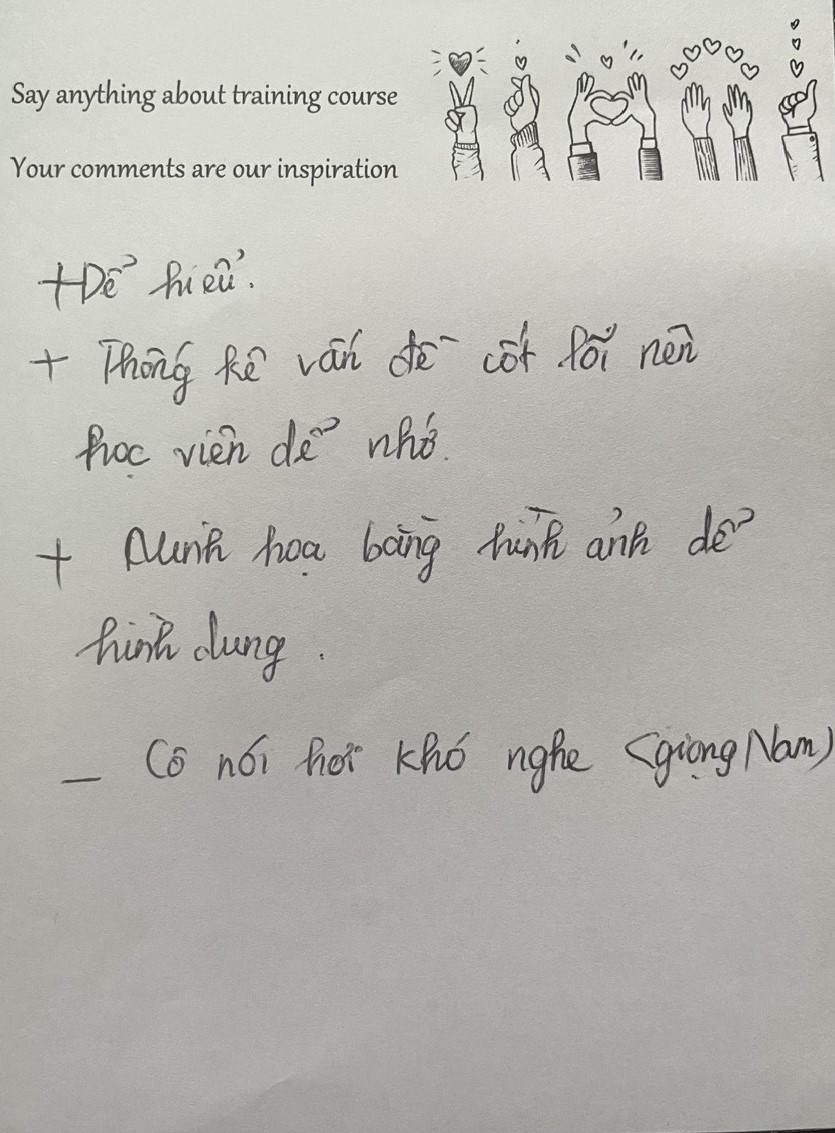 Say anything about training course
Your comments are our inspiration
+ Dễ hiểu.
+ Thống kê vấn đề cốt lõi nên
học viên dễ nhớ.
+ Minh hoạ bằng hình ảnh dễ
hình dung.
- Cô nói hơi khó nghe (giọng Nam)